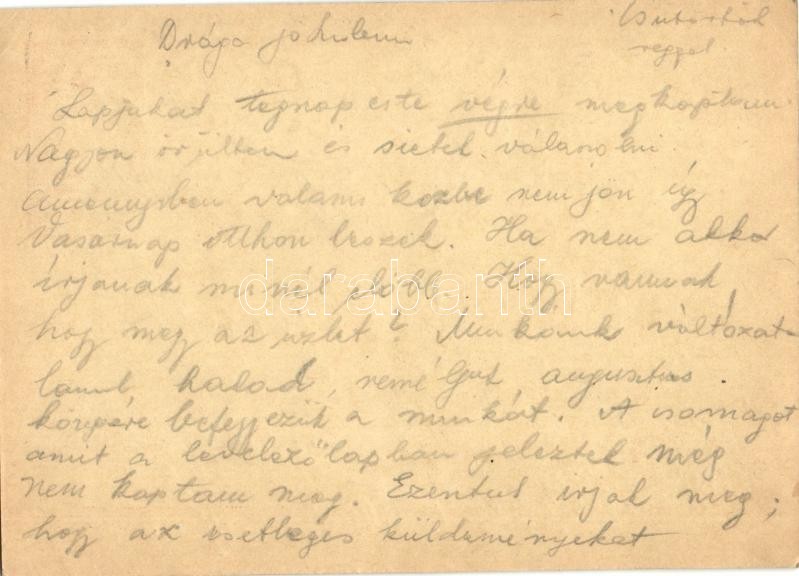 Csütörtök
reggel.
Drága jó
Lapjukat tegnap este végre megkaptam.
Nagyon örültem és sietek válaszolni.
Amennyiben valami közbe nem jön így
Vasárnap otthon leszek. Ha nem akkor
írjanak minél előbb. Hogy vannak,
hogy meg az üzlet? Munkánk változat-
lanul halad, reméljük augusztus
közepére befejezzük a munkát. A csomagot
amit a levelezőlapban jeleztek még
nem kaptam meg. Ezentul irják meg,
hogy az esetleges küldeményeket
darabanth